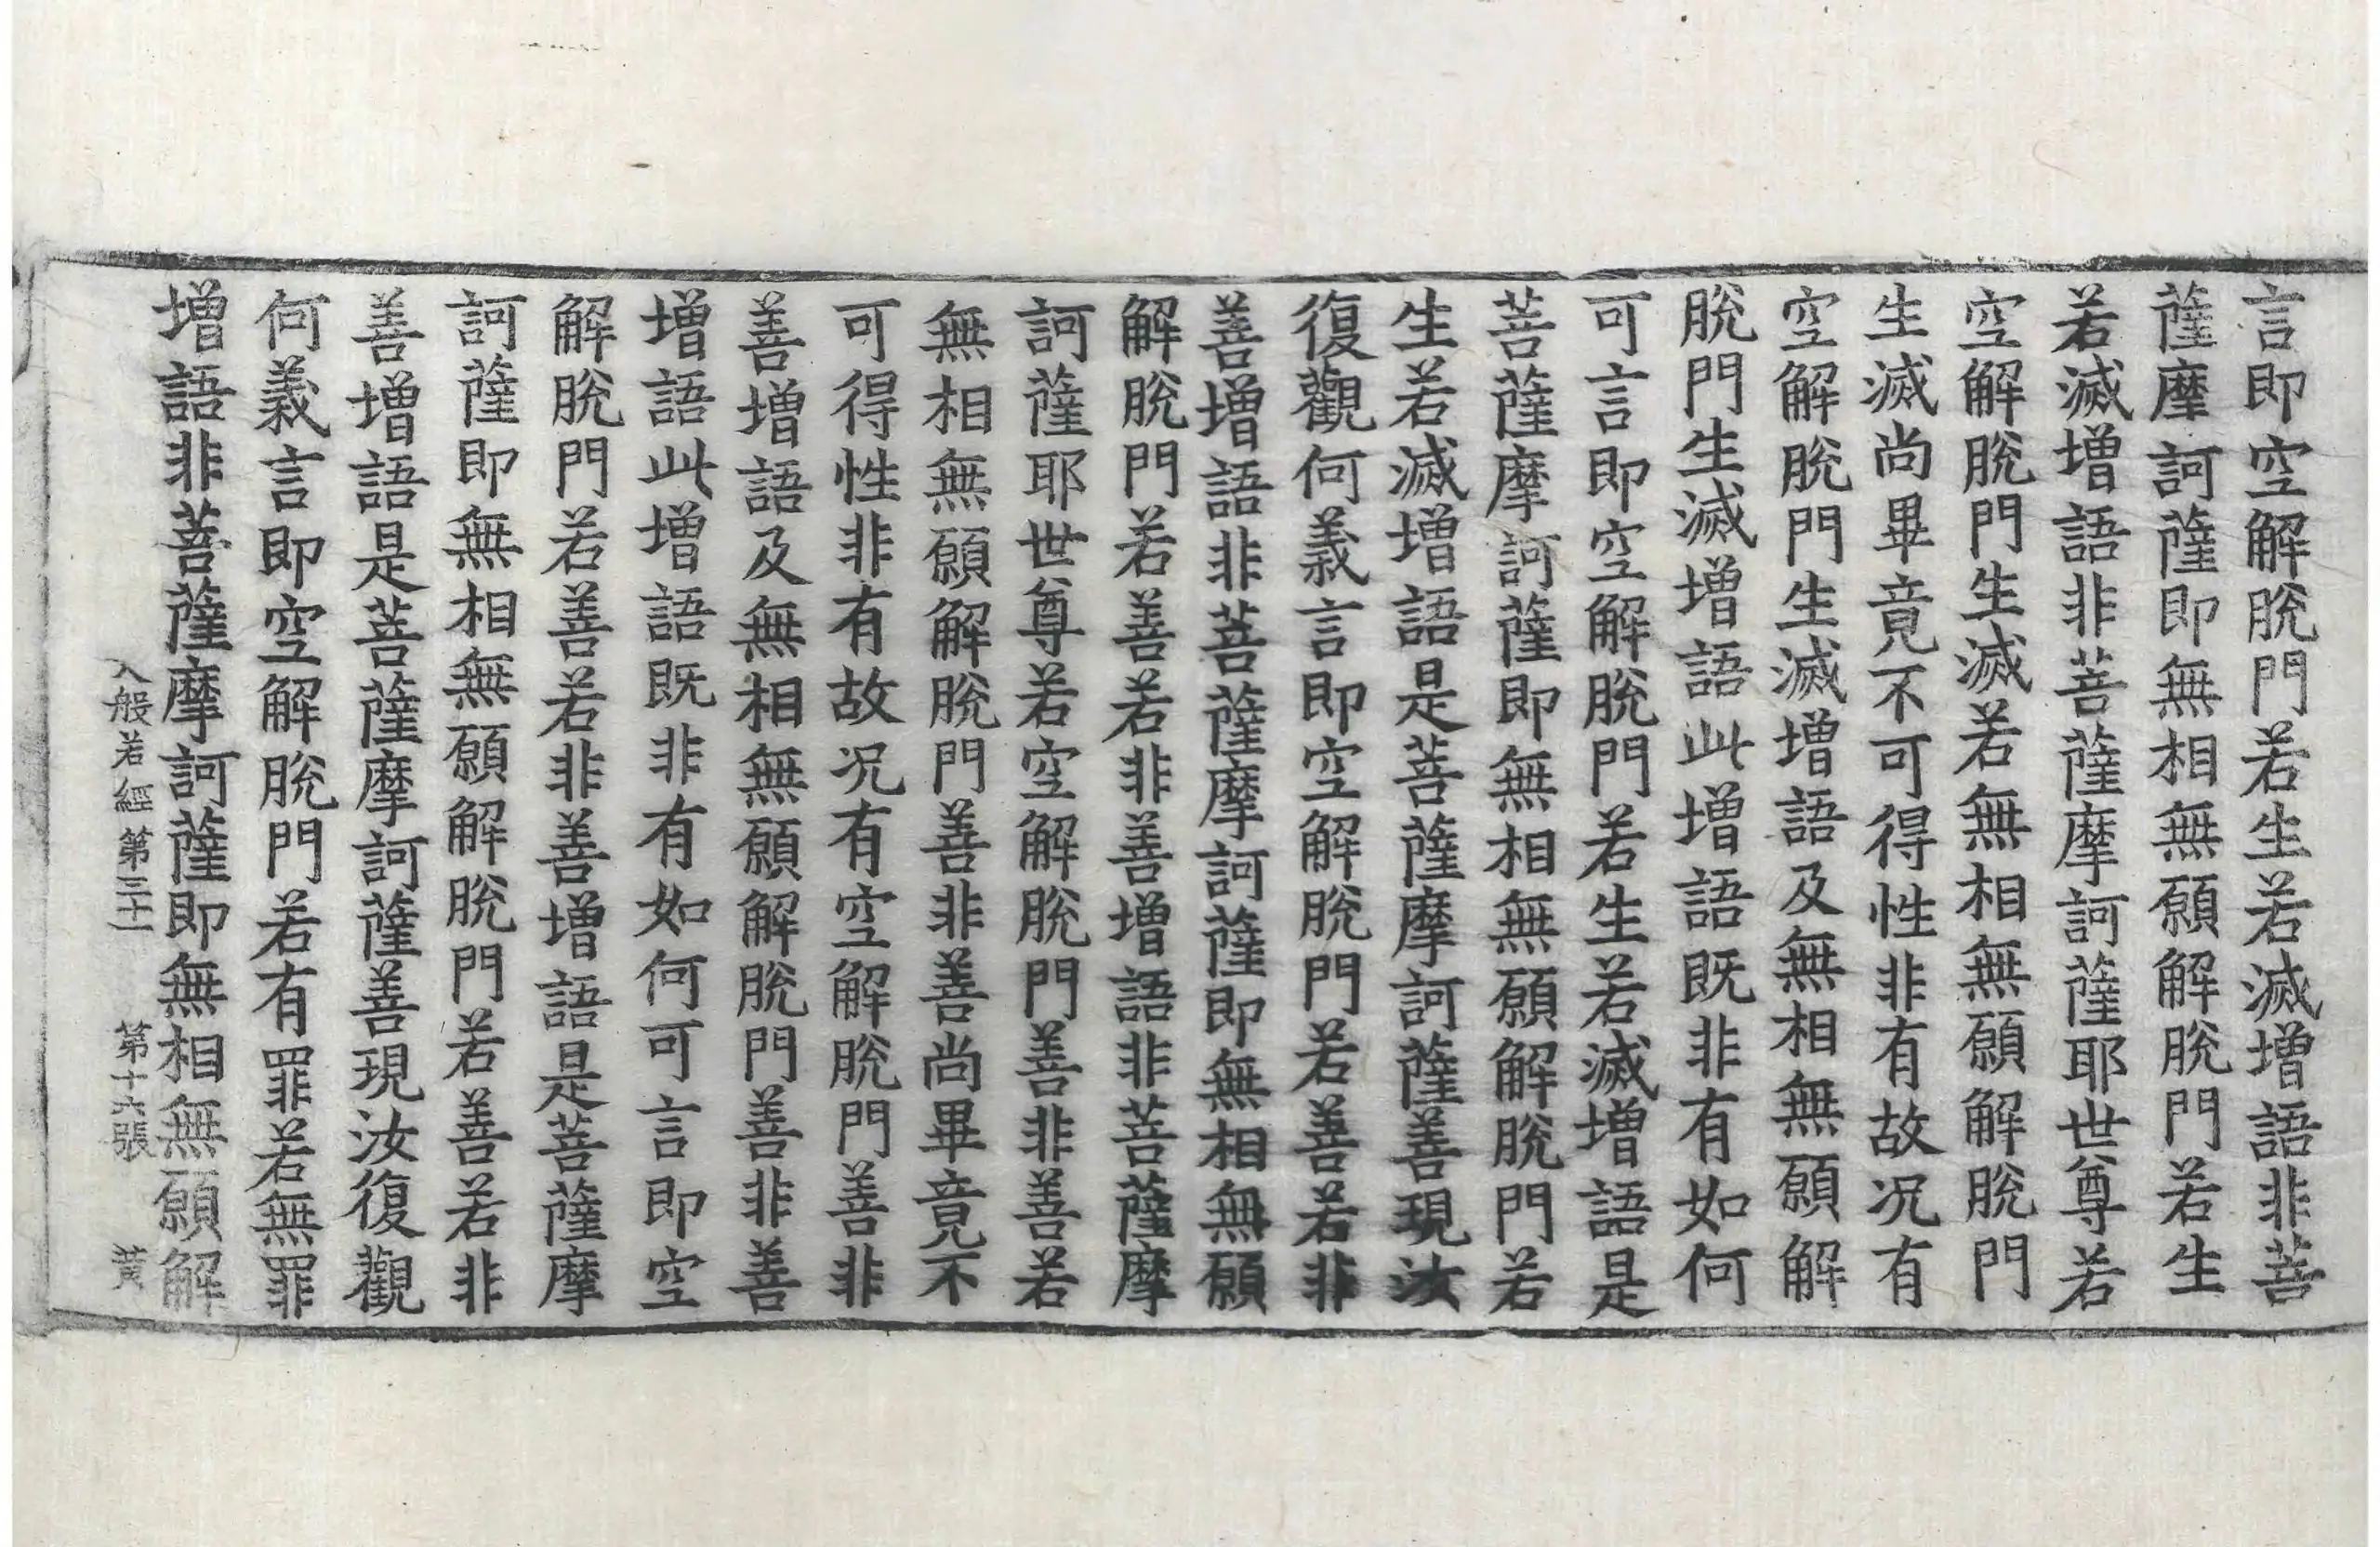 言即空解脫門若生若滅增語非菩
薩摩訶薩即無相無願解脫門若生
若滅增語非菩薩摩訶薩耶世尊若
空解脫門生滅若無相無願解脫門
生滅尚畢竟不可得性非有故况有
空解脫門生滅增語及無相無願解
脫門生滅增語此增語既非有如何
可言即空解脫門若生若滅增語是
菩薩摩訶薩即無相無願解脫門若
生若滅增語是菩薩摩訶薩善現汝
復觀何義言即空解脫門若善若非
善增語非菩薩摩訶薩即無相無願
解脫門若善若非善增語非菩薩摩
訶薩耶世尊若空解脫門善非善若
無相無願解脫門善非善尚畢竟不
可得性非有故况有空解脫門善非
善增語及無相無願解脫門善非善
增語此增語既非有如何可言即空
解脫門若善若非善增語是菩薩摩
訶薩即無相無願解脫門若善若非
善增語是菩薩摩訶薩善現汝復觀
何義言即空解脫門若有罪若無罪
增語非菩薩摩訶薩即無相無願解
般若經第三十 第十六張 黃